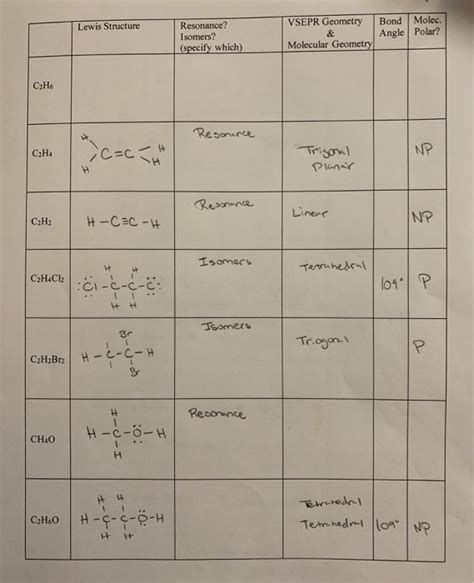 Lewis Structure
Resonance?
Isomers?
(specify which)
VSEPR Geometry
&
Molecular Geometry
Bond
Angle
Molec.
Polar?
C2H6
C2H4
H H
C=C
H H
Resonance
Trigonal
Planar
NP
C2H2
H-C≡C-H
Resonance
Linear
NP
C2H4Cl2
:Cl-C-C-C:
H H
Isomers
Tetrahedral
109°
P
C2H2Br2
Br
H-C-C-H
Br
Isomers
Trigonal
P
CH4O
H
H-C-O-H
H
Resonance
C2H6O
H H
H-C-C-O-H
H H
Tetrahedral
Tetrahedral
109°
NP